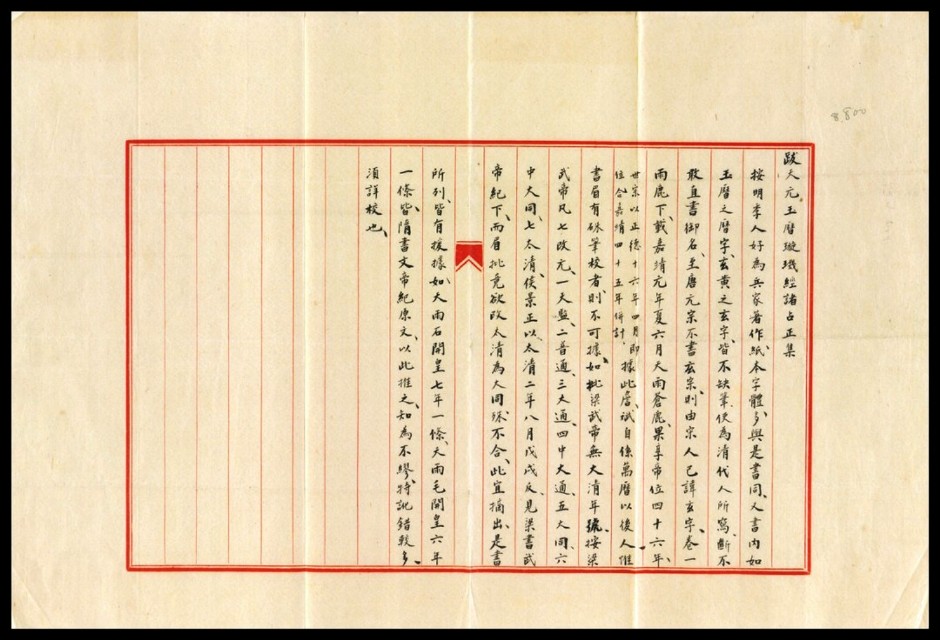 8,800
跋大元玉曆璇璣經諸占正集
按明季人好為兵家著作、紙本字體、多與是書同、又書內如
玉曆之曆字、玄黃之玄字、皆不缺筆、使為清代人所寫、斷不
敢直書御名、至唐元宗不書玄宗、則由宋人已諱玄字、卷一
雨鹿下、載嘉靖元年夏六月天雨蒼鹿、果享帝位四十六年、
世宗以正德十六年四月即
位合嘉靖四十五年併計、
據此自係萬曆以後人、惟
書眉有硃筆校者、則不可據、如批梁武帝無大清年號、按梁
武帝凡七改元、一天監、二普通、三大通、四中大通、五大同、六
中大同、七太清、侯景正以太清二年八月戊戌反、見梁書武
帝紀下、而眉批竟欲改太清為大同、殊不合、此宜摘出、是書
所列、皆有援據、如天雨石開皇七年一條、天雨毛開皇六年
一條、皆隋書文帝紀原文、以此推之、知為不繆、特訛錯較多、
須詳校也、